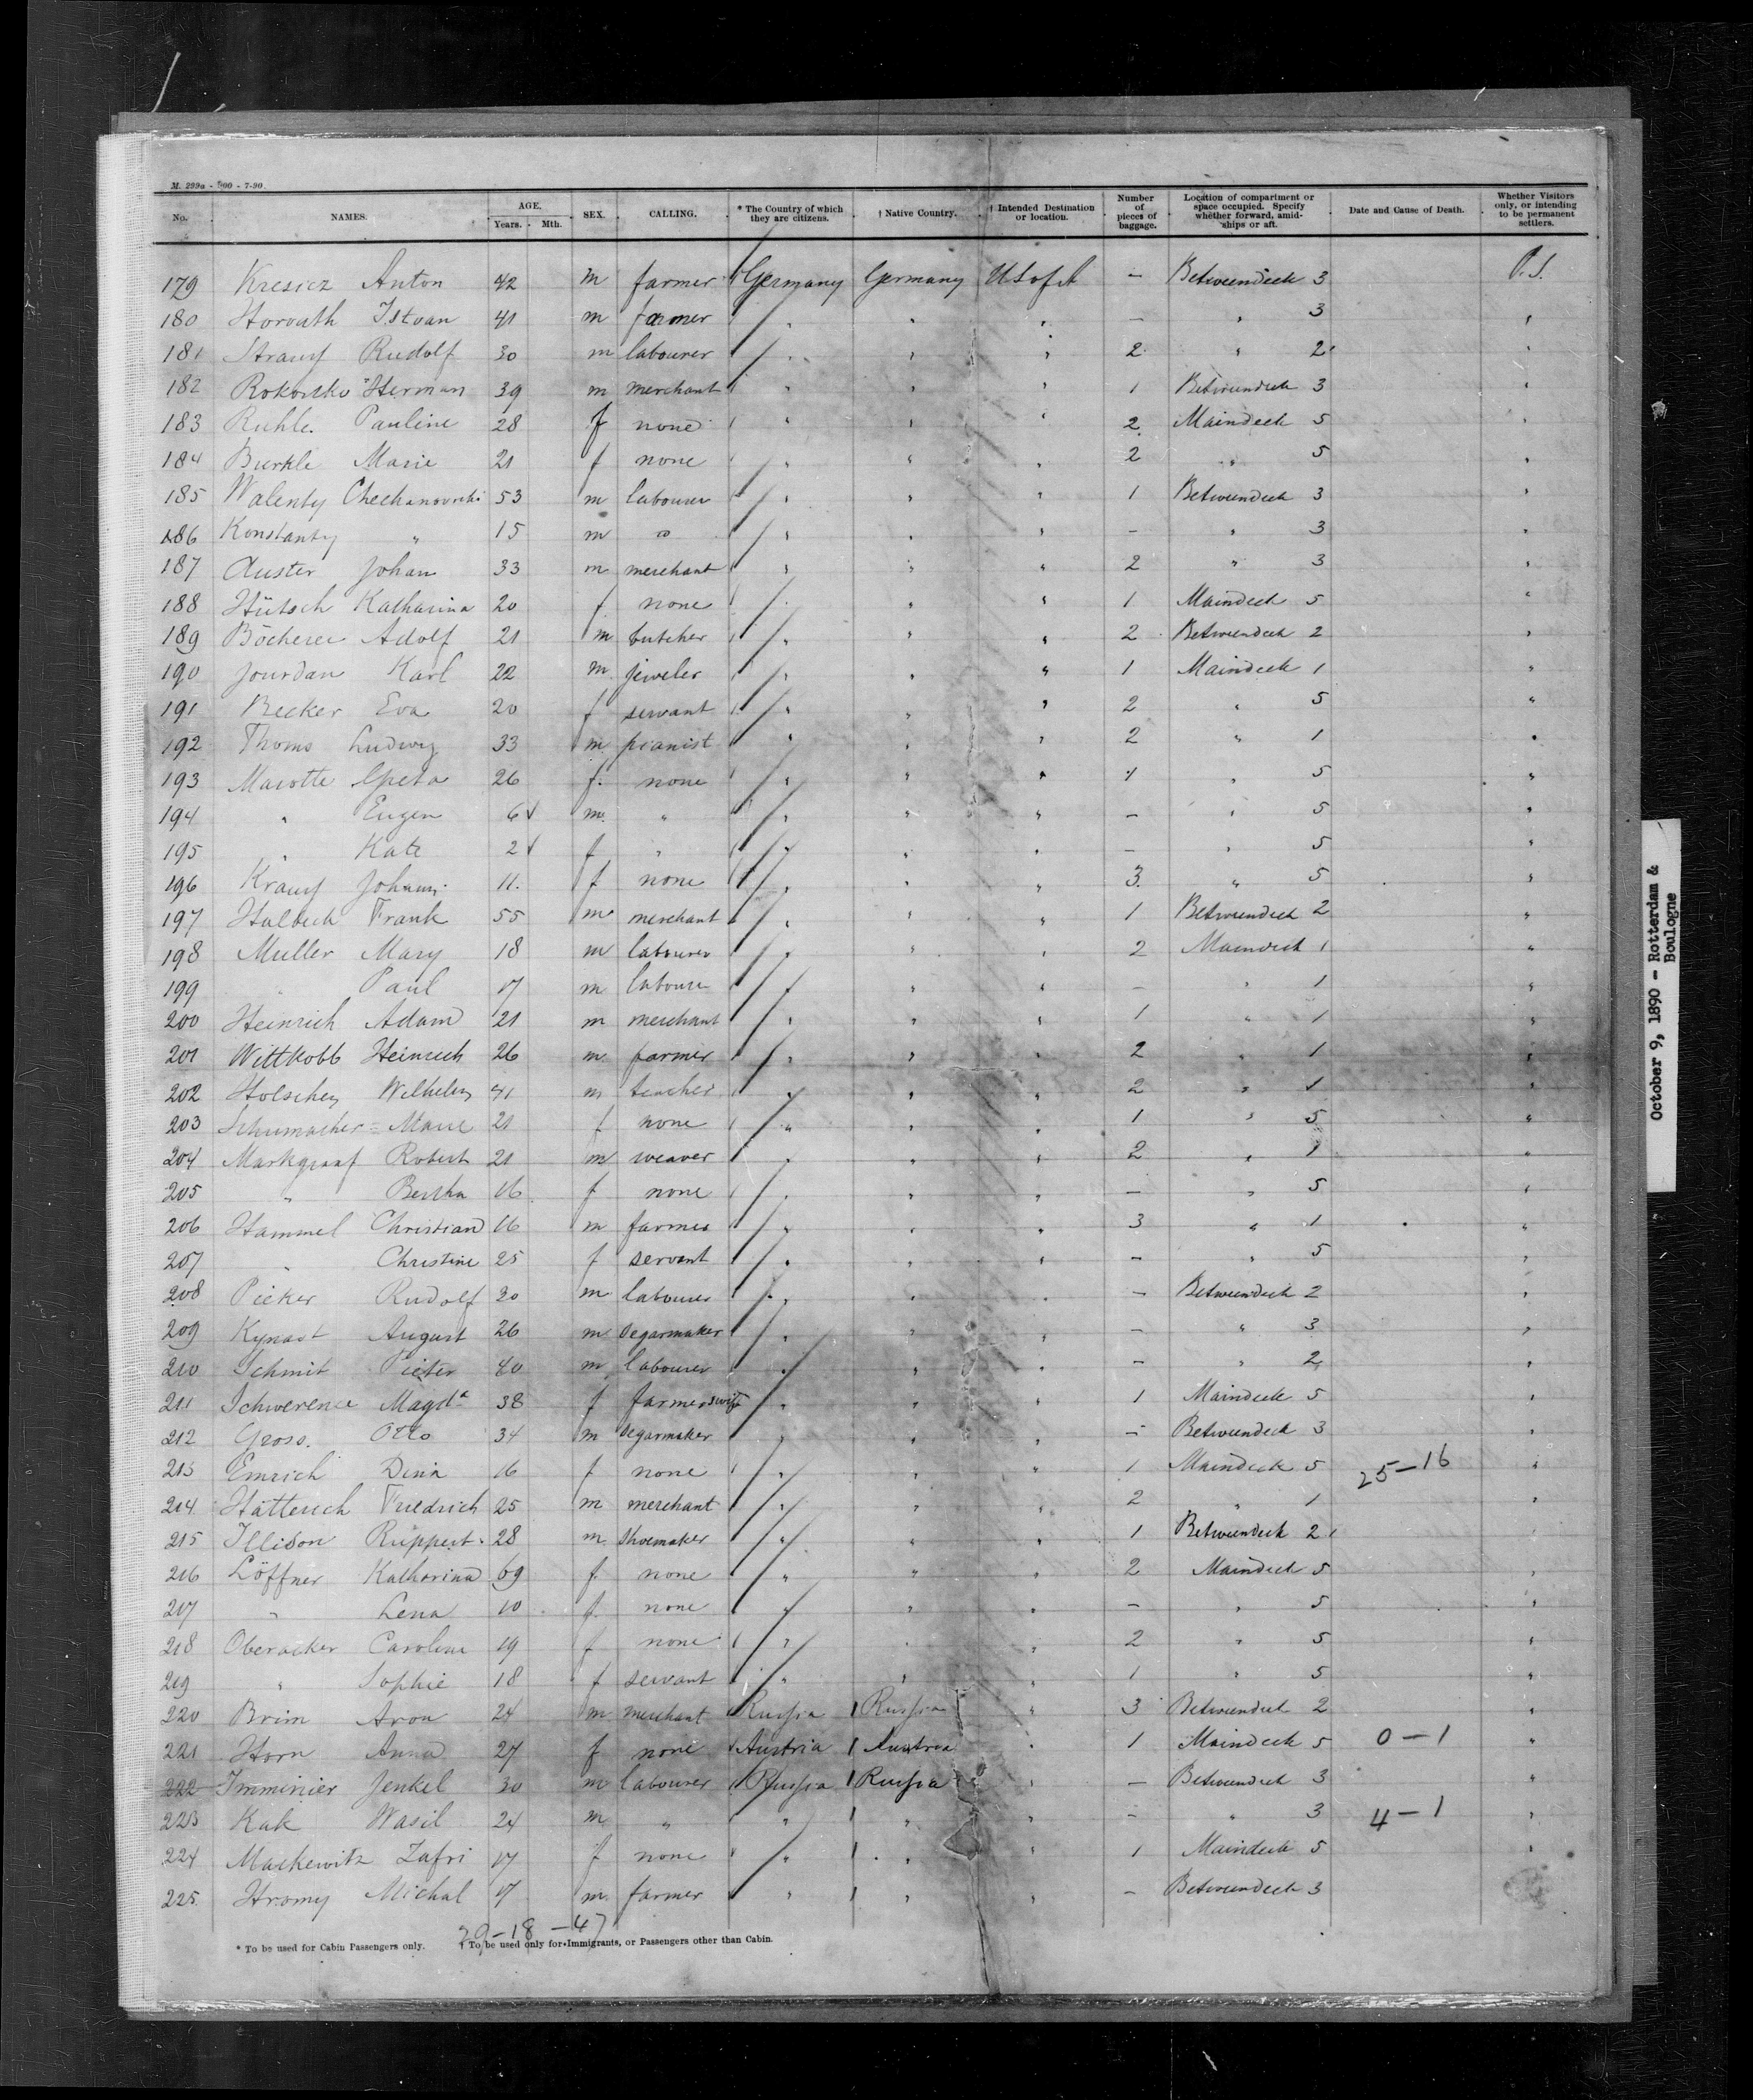 M. 299a - 500 - 7-90.
No. NAMES. AGE. Years. Mth. SEX. CALLING. * The Country of which they are citizens. † Native Country. † Intended Destination or location. Number of pieces of baggage. Location of compartment or space occupied. Specify whether forward, amidships or aft. Date and Cause of Death. Whether Visitors only, or intending to be permanent settlers.
179 Kresicz Anton 42 m farmer Germany Germany U S of A — Betweendeck 3 P.S.
180 Horvath Istvan 41 m farmer " " " — " 3 "
181 Rudolf 30 m labourer " " " 2 " 2 "
182 Herman 39 m merchant " " " 1 Betweendeck 3 "
183 Ruhle. Pauline 28 f none " " " 2 Maindeck 5 "
184 Burkle Marie 21 f none " " " 2 " 5 "
185 Walenty Chechanowski 53 m labourer " " " 1 Betweendeck 3 "
186 Konstanty " 15 m " " " — " 3 "
187 Auster Johan 33 m merchant " " " 2 " 3 "
188 Hütsch Katharina 20 f none " " " 1 Maindeck 5 "
189 Böcherer Adolf 21 m butcher " " " 2 Betweendeck 2 "
190 Jourdan Karl 22 m jeweler " " " 1 Maindeck 1 "
191 Becker Eva 20 f servant " " " 2 " 5 "
192 Thoms Ludwig 33 m pianist " " " 2 " 1 "
193 Marotte Greta 26 f. none " " " 1 " 5 "
194 " Eugen 6 m " " " " — " 5 "
195 " Kate 2 f " " " " — " 5 "
196 11. f none " " " 3 " 5 "
197 Halbeck Frank 55 m merchant " " " 1 Betweendeck 2 "
198 Muller Mary 18 m labourer " " " 2 Maindeck 1 "
199 " Paul 17 m labourer " " " — " 1 "
200 Heinrich Adam 21 m merchant " " " 1 " 1 "
201 Wittkobb Heinrich 26 m farmer " " " 2 " 1 "
202 Wilhelm 41 m teacher " " " 2 " 1 "
203 Schumacher Marie 21 f none " " " 1 " 5 "
204 Markgraaf Robert 21 m weaver " " " 2 " 1 "
205 " Bertha 16 f none " " " — " 5 "
206 Hammel Christian 16 m farmer " " " 3 " 1 "
207 " Christine 25 f servant " " " — " 5 "
208 Picker Rudolf 30 m labourer " " " — Betweendeck 2 "
209 Kynast August 26 m segarmaker " " " — " 3 "
210 Schmit Pieter 40 m labourer " " " — " 2 "
211 Schwerence Magda 38 f farmerswife " " " 1 Maindeck 5 "
212 Gross. Otto 34 m segarmaker " " " — Betweendeck 3 "
213 Emrich Dina 16 f none " " " 1 Maindeck 5 25—16 "
214 Hätterich Friedrich 25 m merchant " " " 2 " 1 "
215 Illison Ruppert 28 m shoemaker " " " 1 Betweendeck 2
216 Löffner Katharina 69 f none " " " 2 Maindeck 5 "
217 " Lena 10 f none " " " — " 5 "
218 Oberacker Caroline 19 f none " " " 2 " 5 "
219 " Sophie 18 f servant " " " 1 " 5 "
220 Brim Aron 24 m merchant Russia Russia " 3 Betweendeck 2 "
221 Horn Anna 27 f none Austria Austria " 1 Maindeck 5 0—1 "
222 Imminier Jenkel 30 m labourer Russia Russia " — Betweendeck 3 "
223 Kak Wasil 24 m " " " " — " 3 4—1 "
224 Machewitz Zafri 17 f none " " " 1 Maindeck 5 "
225. Hromy Michal 17 m farmer " " " — Betweendeck 3
29-18-47
* To be used for Cabin Passengers only. † To be used only for Immigrants, or Passengers other than Cabin.
October 9, 1890 - Rotterdam & Boulogne